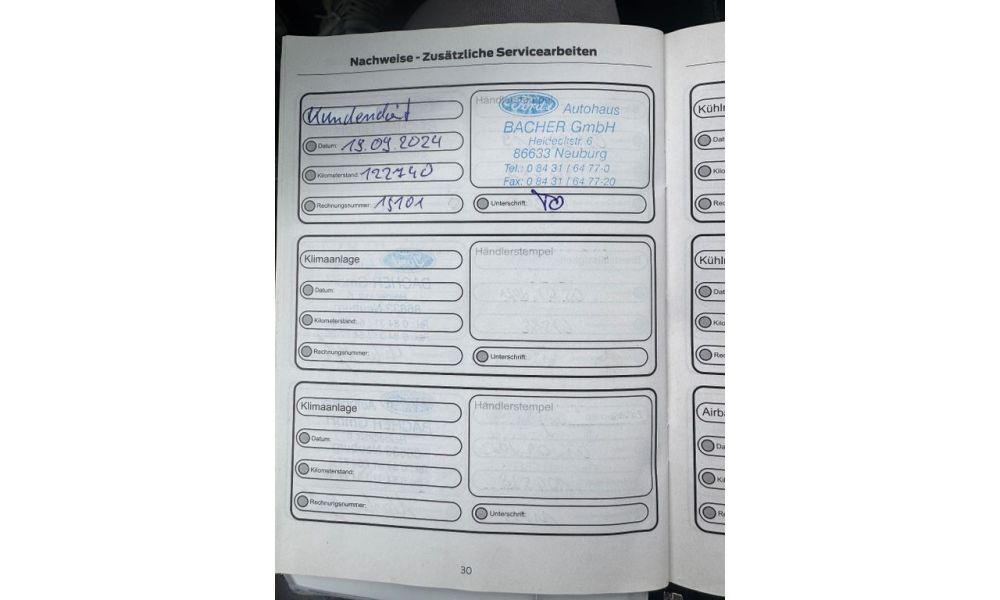 Nachweise - Zusätzliche Servicearbeiten
Kundendienst
Datum: 19.09.2024
Kilometerstand: 122740
Rechnungsnummer: 15101
Händlerstempel
Ford Autohaus
BACHER GmbH
Heideckstr. 6
86633 Neuburg
Tel.: 0 84 31 / 64 77-0
Fax: 0 84 31 / 64 77-20
Unterschrift:
Klimaanlage
Datum:
Kilometerstand:
Rechnungsnummer:
Händlerstempel
Unterschrift:
Klimaanlage
Datum:
Kilometerstand:
Rechnungsnummer:
Händlerstempel
Unterschrift:
30
Kühlm
Dat
Kilo
Rec
Kühlm
Dat
Kilo
Rec
Airba
Da
Ki
Re